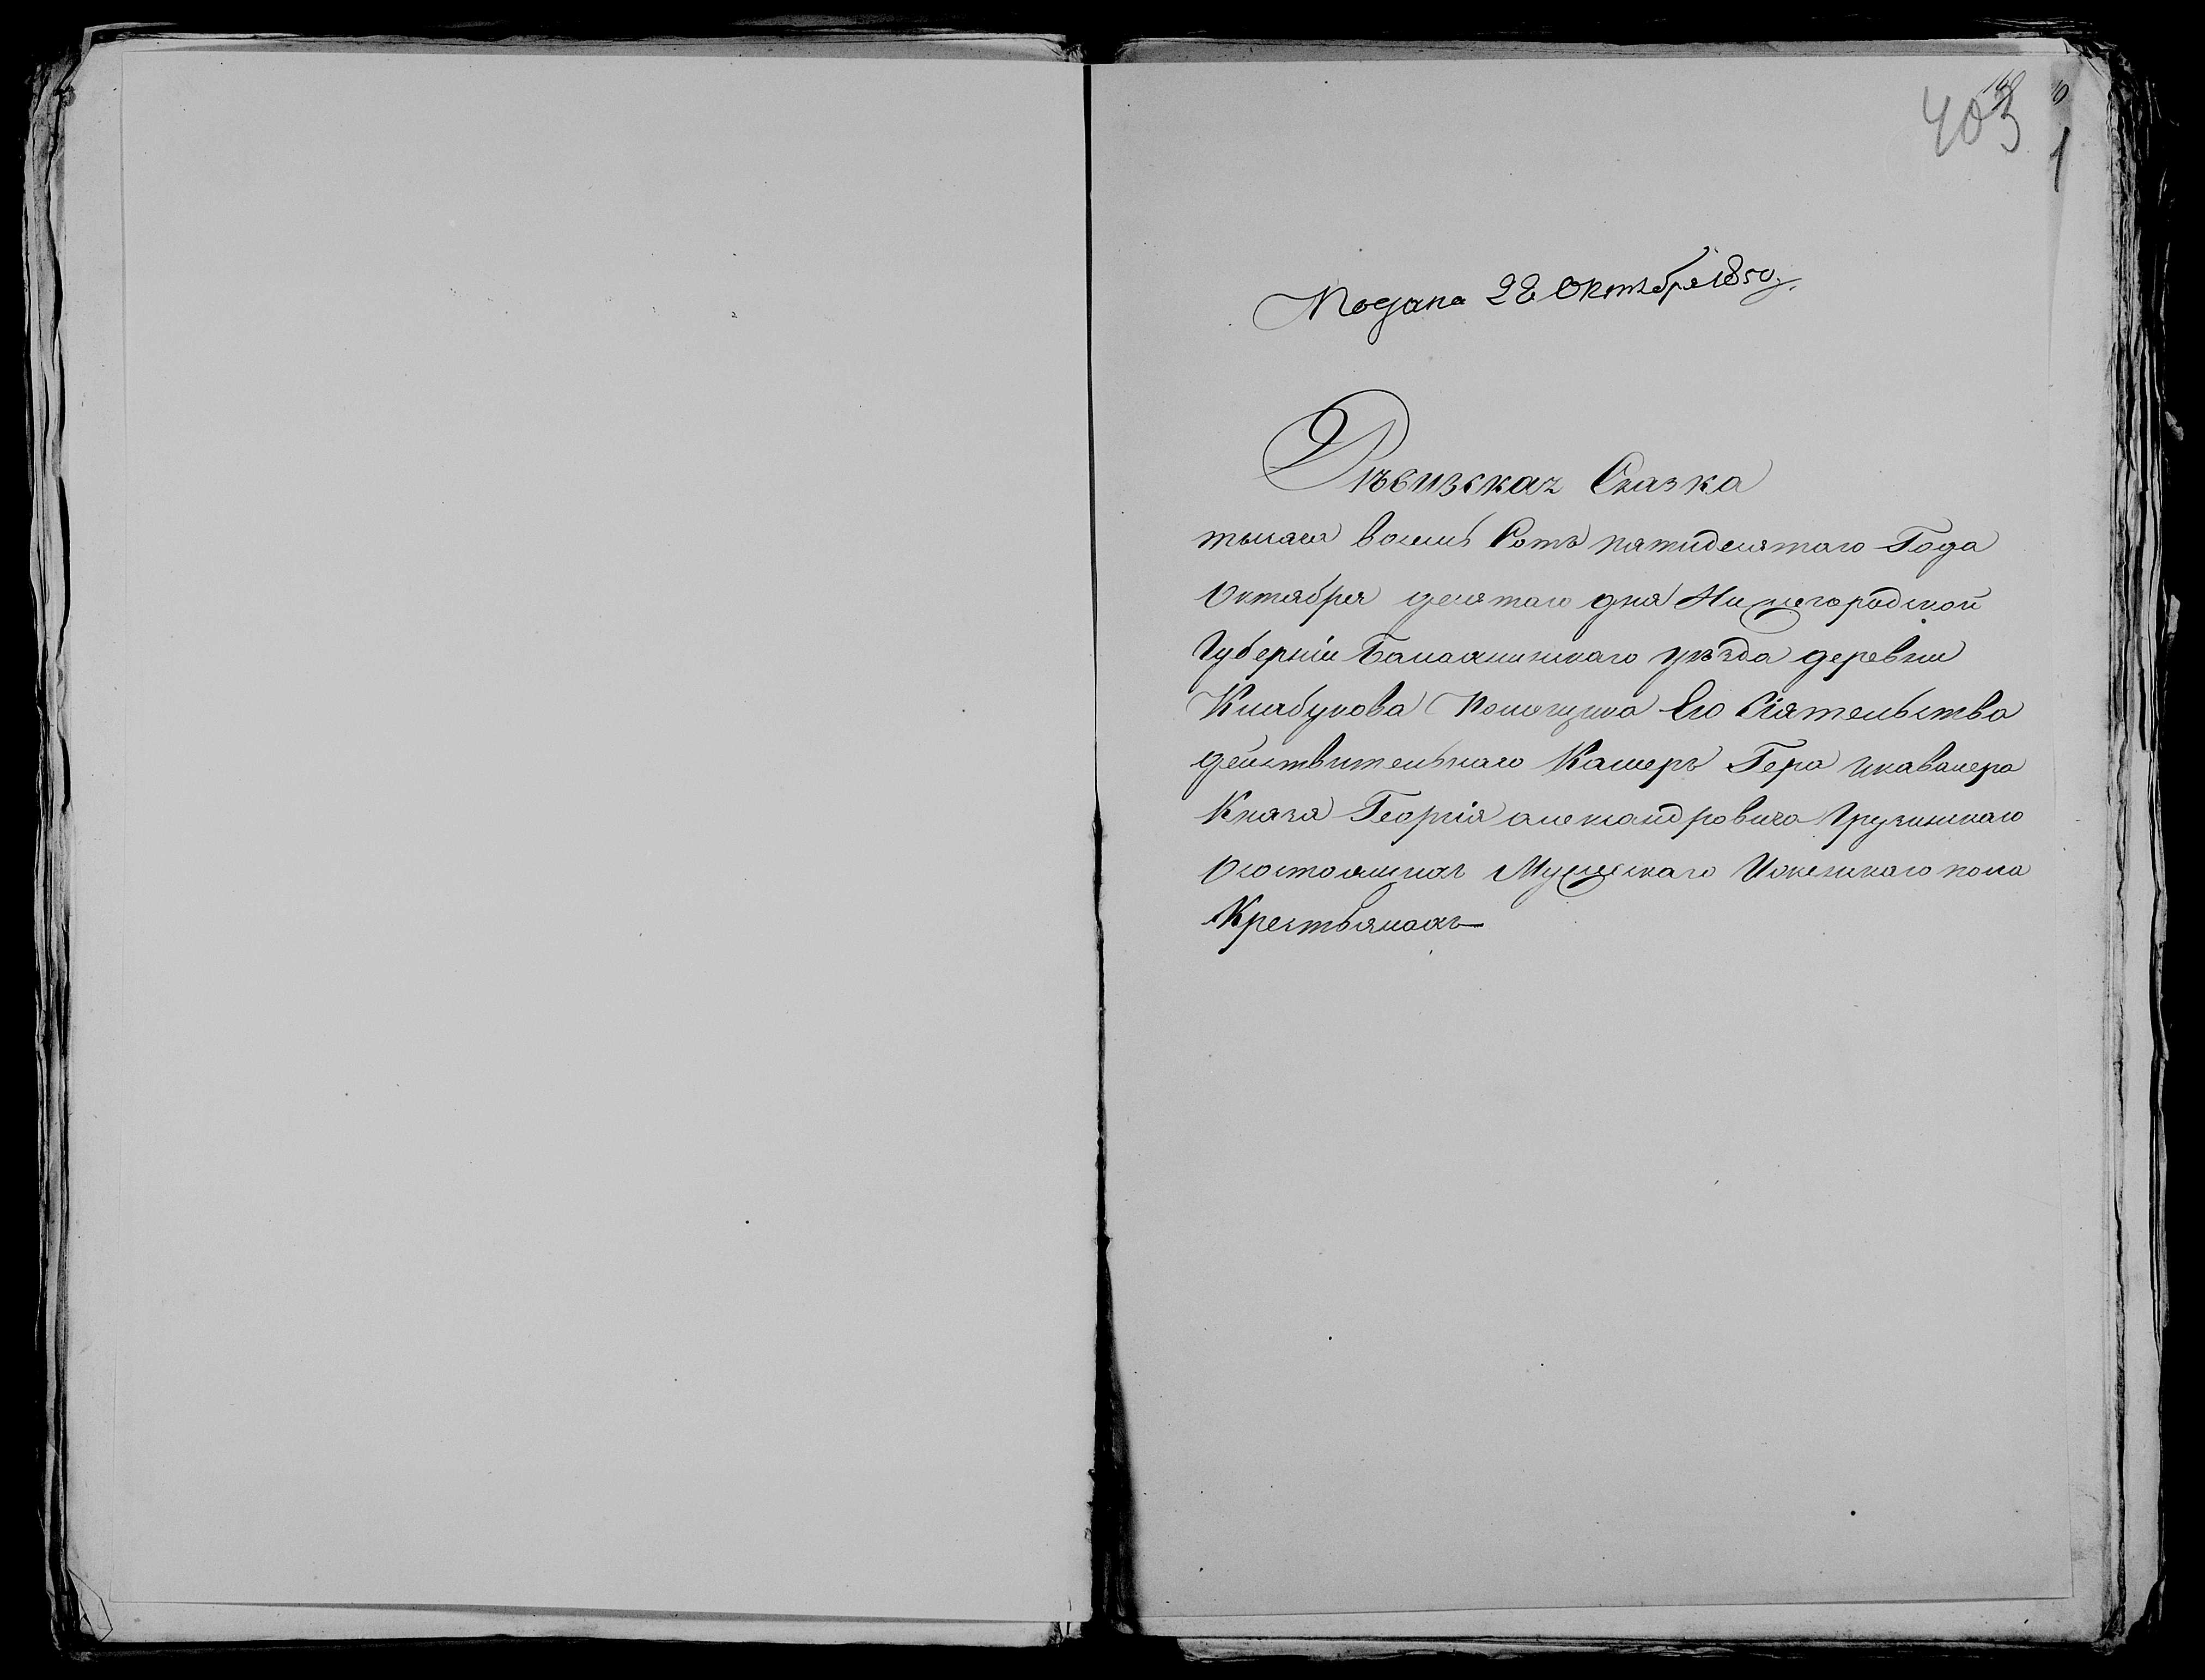 403
1
Подана 22 Октября 1850 г.
Ръвизская Сказка
тысяча восемь Сотъ пятидесятаго Года
Октября десятаго дня Нижегородской
Губерніи Балахнинскаго уѣзда деревни
помещика Его Сіятельства
действительнаго Камеръ Гера икавалера
Князя Георгія александровича Грузинскаго
Осостоящихъ Мужескаго Иженскаго пола
Крестьянахъ